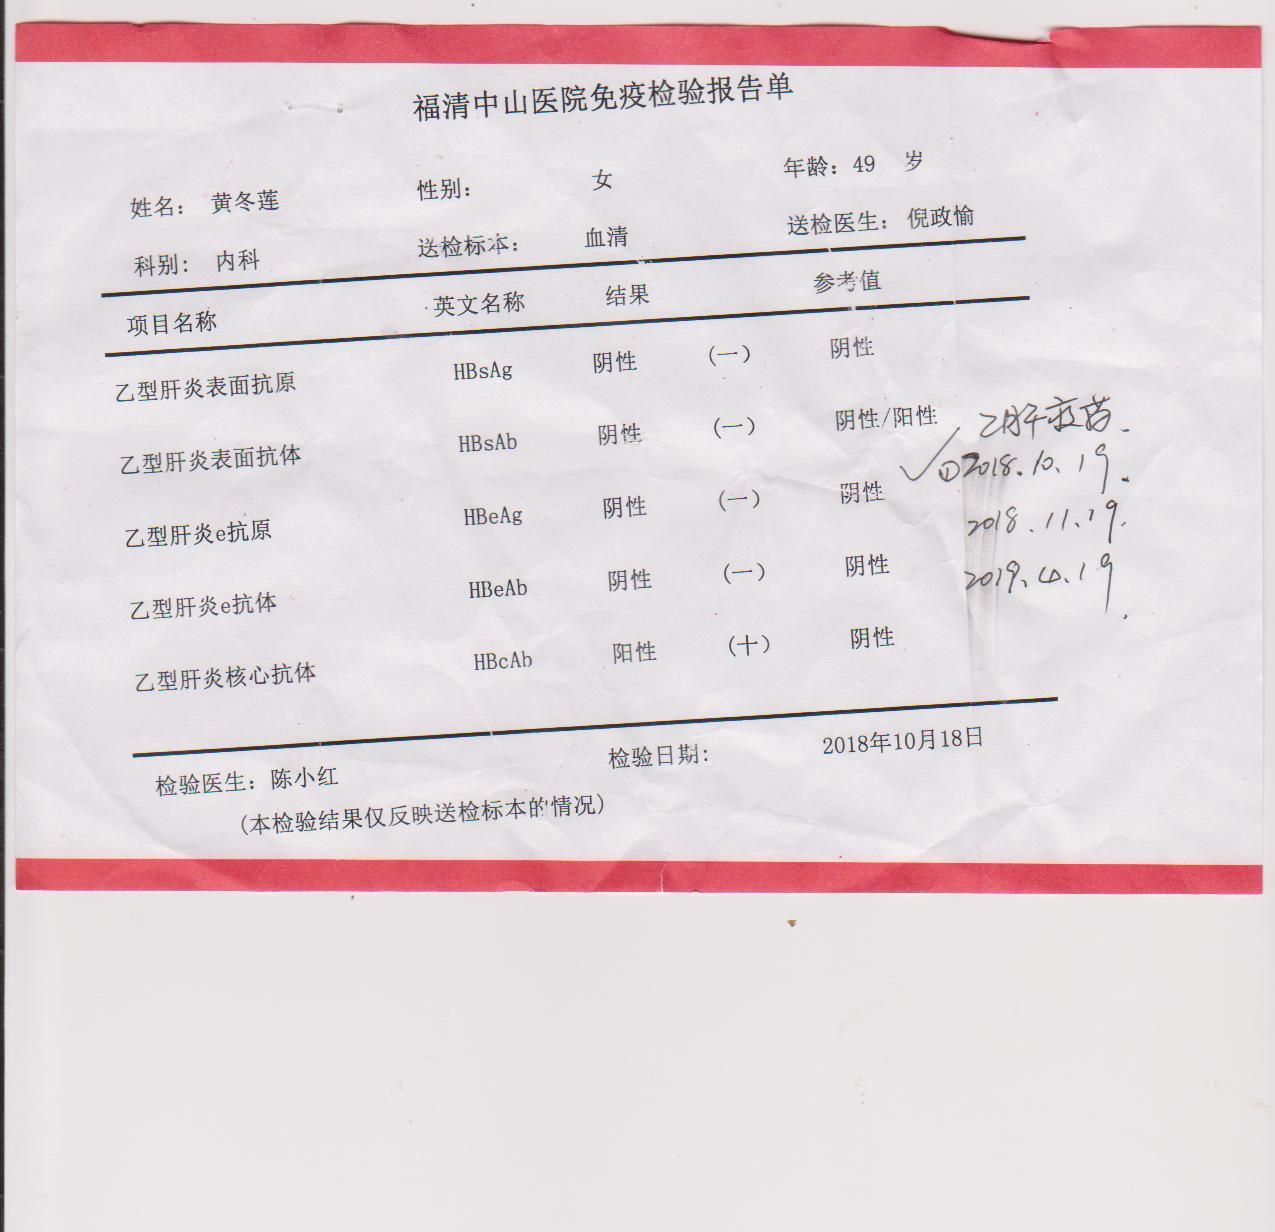 福清中山医院免疫检验报告单
姓名： 黄冬莲 性别： 女 年龄：49 岁
科别： 内科 送检标本： 血清 送检医生：倪政愉
项目名称 英文名称 结果 参考值
乙型肝炎表面抗原 HBsAg 阴性 (一) 阴性
乙型肝炎表面抗体 HBsAb 阴性 (一) 阴性/阳性
乙型肝炎e抗原 HBeAg 阴性 (一) 阴性
乙型肝炎e抗体 HBeAb 阴性 (一) 阴性
乙型肝炎核心抗体 HBcAb 阳性 (十) 阴性
乙肝疫苗.
✓①2018.10.19.
2018.11.19.
2019.4.19.
检验医生：陈小红 检验日期: 2018年10月18日
(本检验结果仅反映送检标本的情况)